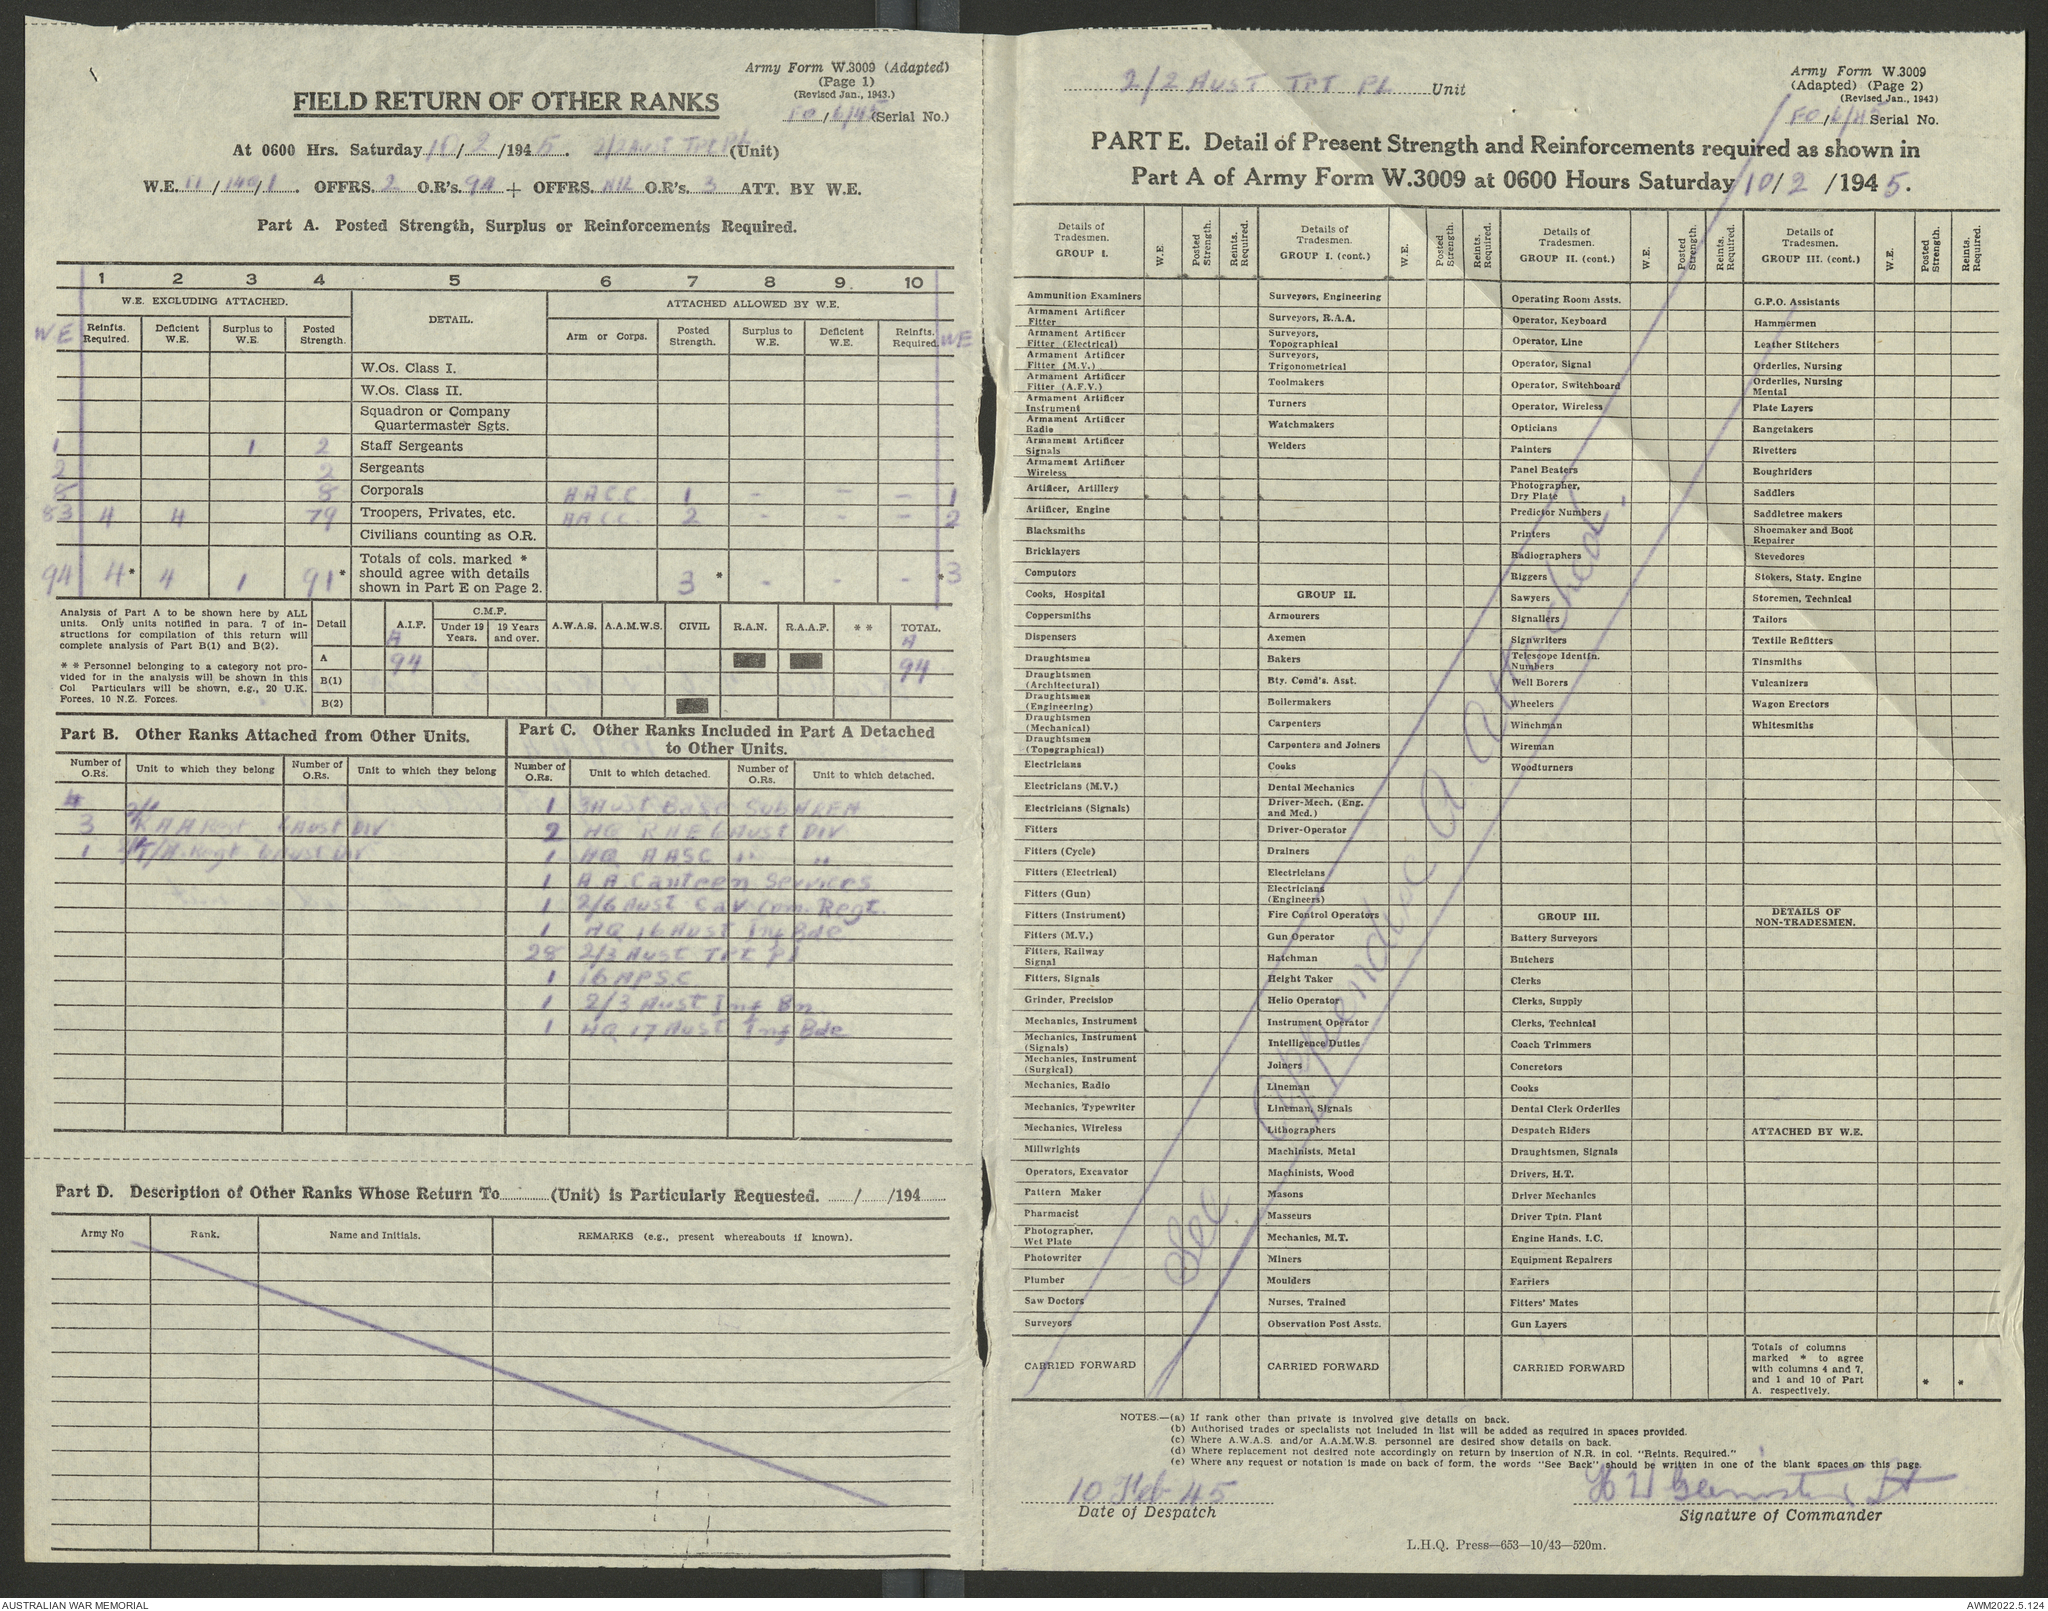 Army Form W.3009 (Adapted)
(Page 1)
(Revised Jan., 1943.)
FO / 6/45 (Serial No.)
FIELD RETURN OF OTHER RANKS
At 0600 Hrs. Saturday 10 / 2 /1945. 2/2 Aust Tpt Pl (Unit)
W.E. II / 149 / 1 . OFFRS. 2 O.R's. 94 + OFFRS. NIL O.R's. 3 ATT. BY W.E.
Part A. Posted Strength, Surplus or Reinforcements Required.
1 2 3 4 5 6 7 8 9 10
W.E. EXCLUDING ATTACHED. DETAIL. ATTACHED ALLOWED BY W.E.
WE Reinfts. Required. Deficient W.E. Surplus to W.E. Posted Strength. Arm or Corps. Posted Strength. Surplus to W.E. Deficient W.E. Reinfts. Required. WE
W.Os. Class I.
W.Os. Class II.
Squadron or Company
Quartermaster Sgts.
1 1 2 Staff Sergeants
2 2 Sergeants
8 8 Corporals A A C C 1 - - - 1
83 4 4 79 Troopers, Privates, etc. A A C C 2 - - - 2
Civilians counting as O.R.
94 4* 4 1 91* Totals of cols. marked * should agree with details shown in Part E on Page 2. 3 * - - - * 3
Analysis of Part A to be shown here by ALL
units. Only units notified in para. 7 of in-
structions for compilation of this return will
complete analysis of Part B(1) and B(2).
* * Personnel belonging to a category not pro-
vided for in the analysis will be shown in this
Col Particulars will be shown, e.g., 20 U.K.
Forces, 10 N.Z. Forces.
Detail A.I.F. C.M.F. Under 19 Years. 19 Years and over. A.W.A.S. A.A.M.W.S. CIVIL R.A.N. R.A.A.F. * * TOTAL.
A A
A 94 94
B(1)
B(2)
Part B. Other Ranks Attached from Other Units.
Number of O.Rs. Unit to which they belong Number of O.Rs. Unit to which they belong
3 R A A Regt 6 Aust Div
1 Regt 6 Aust Div
Part C. Other Ranks Included in Part A Detached
to Other Units.
Number of O.Rs. Unit to which detached. Number of O.Rs. Unit to which detached.
1 3 Aust Base Sub Area
2 HQ RAE 6 Aust Div
1 HQ AASC " "
1 A A Canteen Services
1 2/6 Aust Cav Com. Regt.
1 HQ 16 Aust Inf Bde
28 2/3 Aust Tpt Pl
1 16 APSC
1 2/3 Aust Inf Bn
1 HQ 17 Aust Inf Bde
Part D. Description of Other Ranks Whose Return To (Unit) is Particularly Requested. / /194
Army No Rank. Name and Initials. REMARKS (e.g., present whereabouts if known).
2/2 AUST TPT PL Unit
Army Form W.3009
(Adapted) (Page 2)
(Revised Jan., 1943)
FO / 6/45 Serial No.
PART E. Detail of Present Strength and Reinforcements required as shown in
Part A of Army Form W.3009 at 0600 Hours Saturday 10/ 2 /1945.
Details of Tradesmen. GROUP I. W.E. Posted Strength. Reints. Required.
Ammunition Examiners
Armament Artificer Fitter
Armament Artificer Fitter (Electrical)
Armament Artificer Fitter (M.V.)
Armament Artificer Fitter (A.F.V.)
Armament Artificer Instrument
Armament Artificer Radio
Armament Artificer Signals
Armament Artificer Wireless
Artificer, Artillery
Artificer, Engine
Blacksmiths
Bricklayers
Computors
Cooks, Hospital
Coppersmiths
Dispensers
Draughtsmen
Draughtsmen (Architectural)
Draughtsmen (Engineering)
Draughtsmen (Mechanical)
Draughtsmen (Topographical)
Electricians
Electricians (M.V.)
Electricians (Signals)
Fitters
Fitters (Cycle)
Fitters (Electrical)
Fitters (Gun)
Fitters (Instrument)
Fitters (M.V.)
Fitters, Railway Signal
Fitters, Signals
Grinder, Precision
Mechanics, Instrument
Mechanics, Instrument (Signals)
Mechanics, Instrument (Surgical)
Mechanics, Radio
Mechanics, Typewriter
Mechanics, Wireless
Millwrights
Operators, Excavator
Pattern Maker
Pharmacist
Photographer, Wet Plate
Photowriter
Plumber
Saw Doctors
Surveyors
CARRIED FORWARD
Details of Tradesmen. GROUP I. (cont.) W.E. Posted Strength. Reints. Required.
Surveyors, Engineering
Surveyors, R.A.A.
Surveyors, Topographical
Surveyors, Trigonometrical
Toolmakers
Turners
Watchmakers
Welders
GROUP II.
Armourers
Axemen
Bakers
Bty. Comd's. Asst.
Boilermakers
Carpenters
Carpenters and Joiners
Cooks
Dental Mechanics
Driver-Mech. (Eng. and Med.)
Driver-Operator
Drainers
Electricians
Electricians (Engineers)
Fire Control Operators
Gun Operator
Hatchman
Height Taker
Helio Operator
Instrument Operator
Intelligence Duties
Joiners
Lineman
Lineman, Signals
Lithographers
Machinists, Metal
Machinists, Wood
Masons
Masseurs
Mechanics, M.T.
Miners
Moulders
Nurses, Trained
Observation Post Assts.
CARRIED FORWARD
Details of Tradesmen. GROUP II. (cont.) W.E. Posted Strength. Reints. Required.
Operating Room Assts.
Operator, Keyboard
Operator, Line
Operator, Signal
Operator, Switchboard
Operator, Wireless
Opticians
Painters
Panel Beaters
Photographer, Dry Plate
Predictor Numbers
Printers
Radiographers
Riggers
Sawyers
Signallers
Signwriters
Telescope Identfn. Numbers
Well Borers
Wheelers
Winchman
Wireman
Woodturners
GROUP III.
Battery Surveyors
Butchers
Clerks
Clerks, Supply
Clerks, Technical
Coach Trimmers
Concretors
Cooks
Dental Clerk Orderlies
Despatch Riders
Draughtsmen, Signals
Drivers, H.T.
Driver Mechanics
Driver Tptn. Plant
Engine Hands, I.C.
Equipment Repairers
Farriers
Fitters' Mates
Gun Layers
CARRIED FORWARD
Details of Tradesmen. GROUP III. (cont.) W.E. Posted Strength. Reints. Required.
G.P.O. Assistants
Hammermen
Leather Stitchers
Orderlies, Nursing
Orderlies, Nursing Mental
Plate Layers
Rangetakers
Rivetters
Roughriders
Saddlers
Saddletree makers
Shoemaker and Boot Repairer
Stevedores
Stokers, Staty. Engine
Storemen, Technical
Tailors
Textile Refitters
Tinsmiths
Vulcanizers
Wagon Erectors
Whitesmiths
DETAILS OF NON-TRADESMEN.
ATTACHED BY W.E.
Totals of columns marked * to agree with columns 4 and 7, and 1 and 10 of Part A. respectively. * *
See Appendix A attached.
NOTES.—(a) If rank other than private is involved give details on back.
(b) Authorised trades or specialists not included in list will be added as required in spaces provided.
(c) Where A.W.A.S. and/or A.A.M.W.S. personnel are desired show details on back.
(d) Where replacement not desired note accordingly on return by insertion of N.R. in col. "Reints. Required."
(e) Where any request or notation is made on back of form, the words "See Back" should be written in one of the blank spaces on this page.
10 Feb 45
Date of Despatch
Lt
Signature of Commander
L.H.Q. Press—653—10/43—520m.
AUSTRALIAN WAR MEMORIAL
AWM2022.5.124